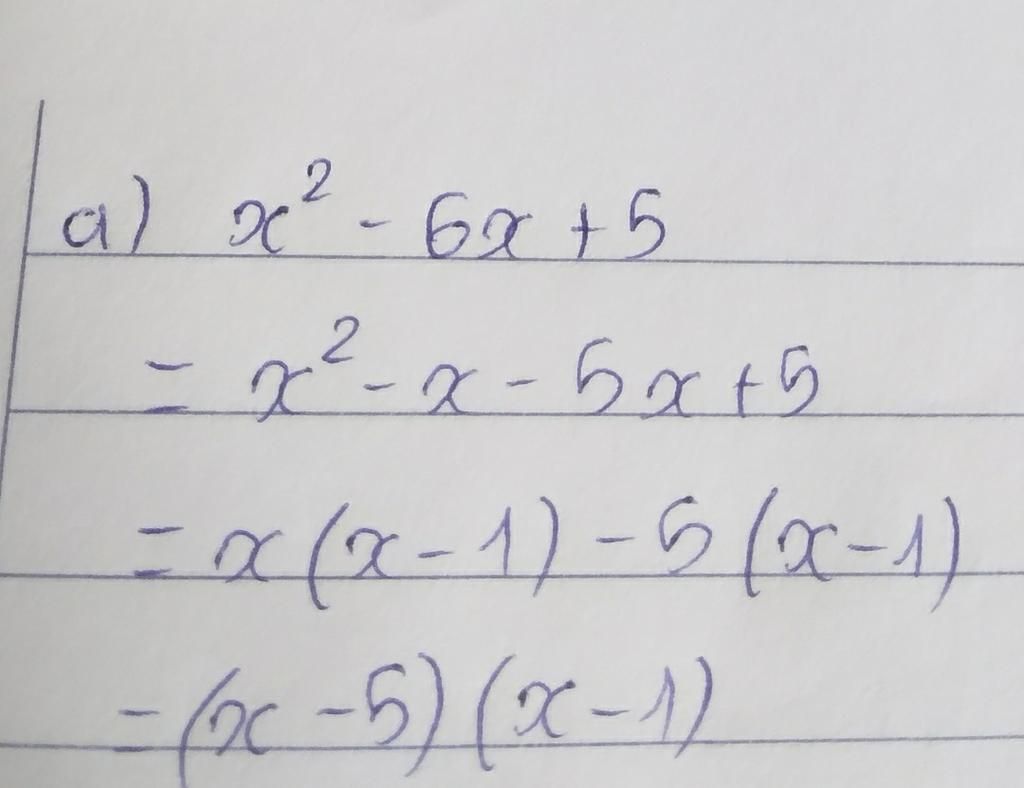 a) x² - 6x + 5
= x² - x - 5x + 5
= x(x - 1) - 5(x - 1)
= (x - 5)(x - 1)